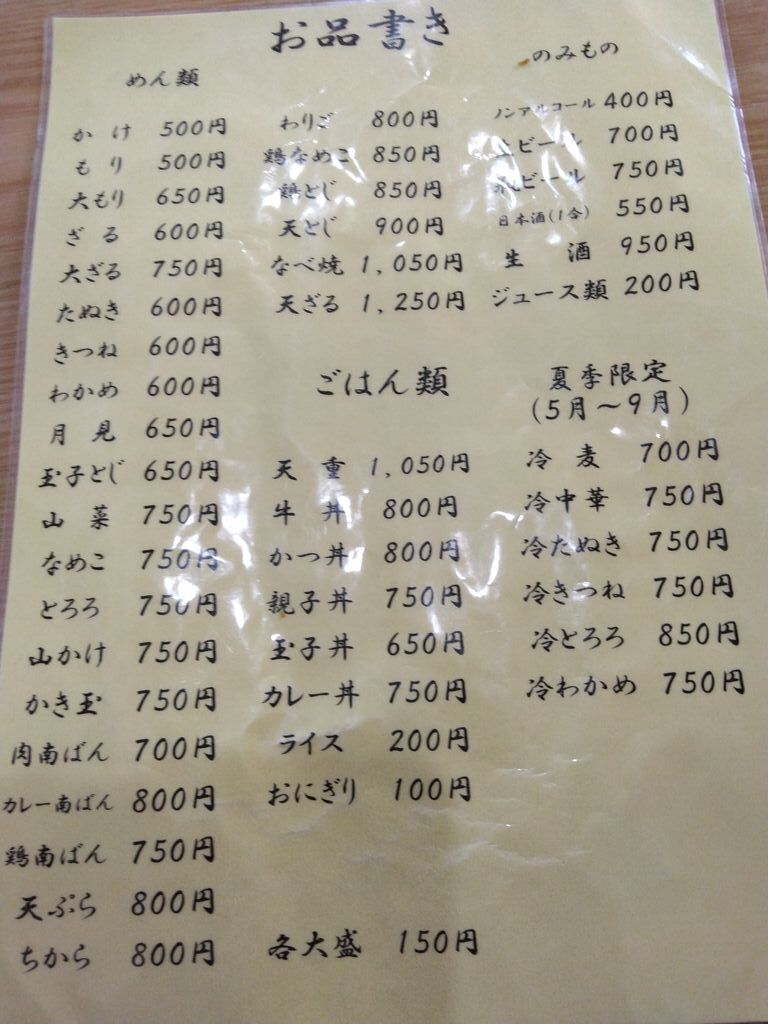 お品書き
めん類
かけ 500円
もり 500円
大もり 650円
ざる 600円
大ざる 750円
たぬき 600円
きつね 600円
わかめ 600円
月見 650円
玉子とじ 650円
山菜 750円
なめこ 750円
とろろ 750円
山かけ 750円
かき玉 750円
肉南ばん 700円
カレー南ばん 800円
鶏南ばん 750円
天ぷら 800円
ちから 800円
わりご 800円
鶏なめこ 850円
鶏とじ 850円
天とじ 900円
なべ焼 1,050円
天ざる 1,250円
ごはん類
天重 1,050円
牛丼 800円
かつ丼 800円
親子丼 750円
玉子丼 650円
カレー丼 750円
ライス 200円
おにぎり 100円
各大盛 150円
のみもの
ノンアルコール 400円
生ビール 700円
瓶ビール 750円
日本酒(1合) 550円
生酒 950円
ジュース類 200円
夏季限定
(5月～9月)
冷麦 700円
冷中華 750円
冷たぬき 750円
冷きつね 750円
冷とろろ 850円
冷わかめ 750円